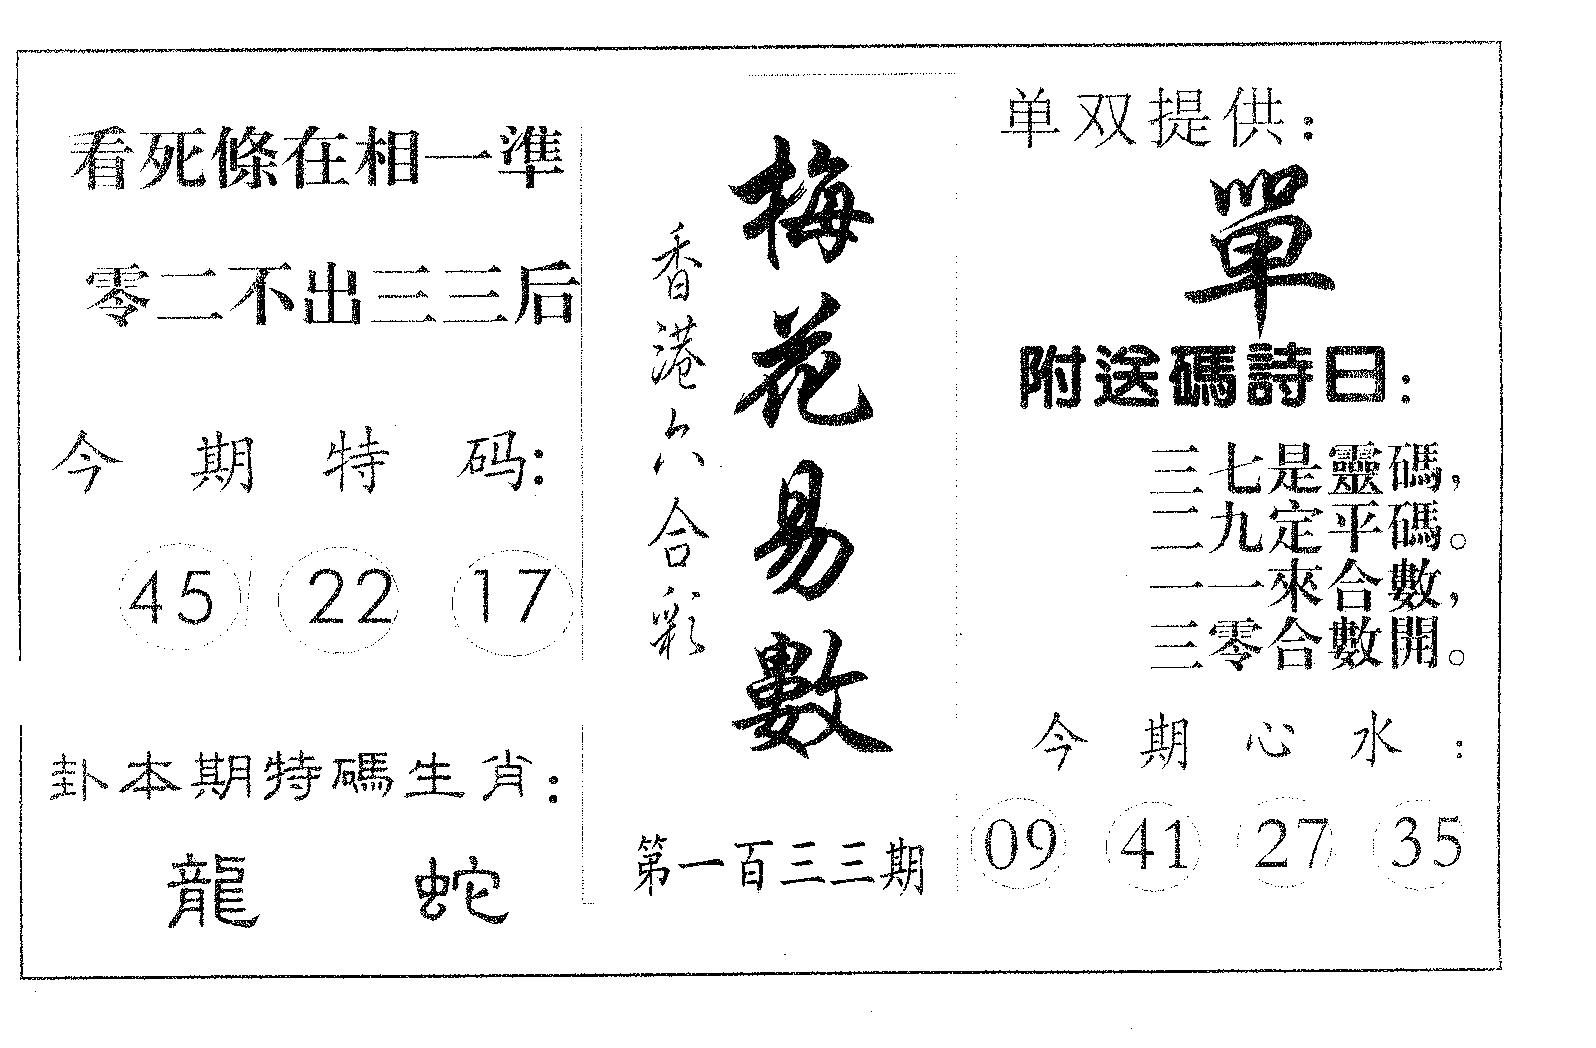 单双提供：
單
附送碼詩曰：
三七是靈碼，
二九定平碼。
一一來合數，
三零合數開。
今期心水：
09 41 27 35
梅花易數
香港六合彩
第一百三三期
看死條在相一準
零二不出三三后
今期特码：
45 22 17
卦本期特碼生肖：
龍 蛇